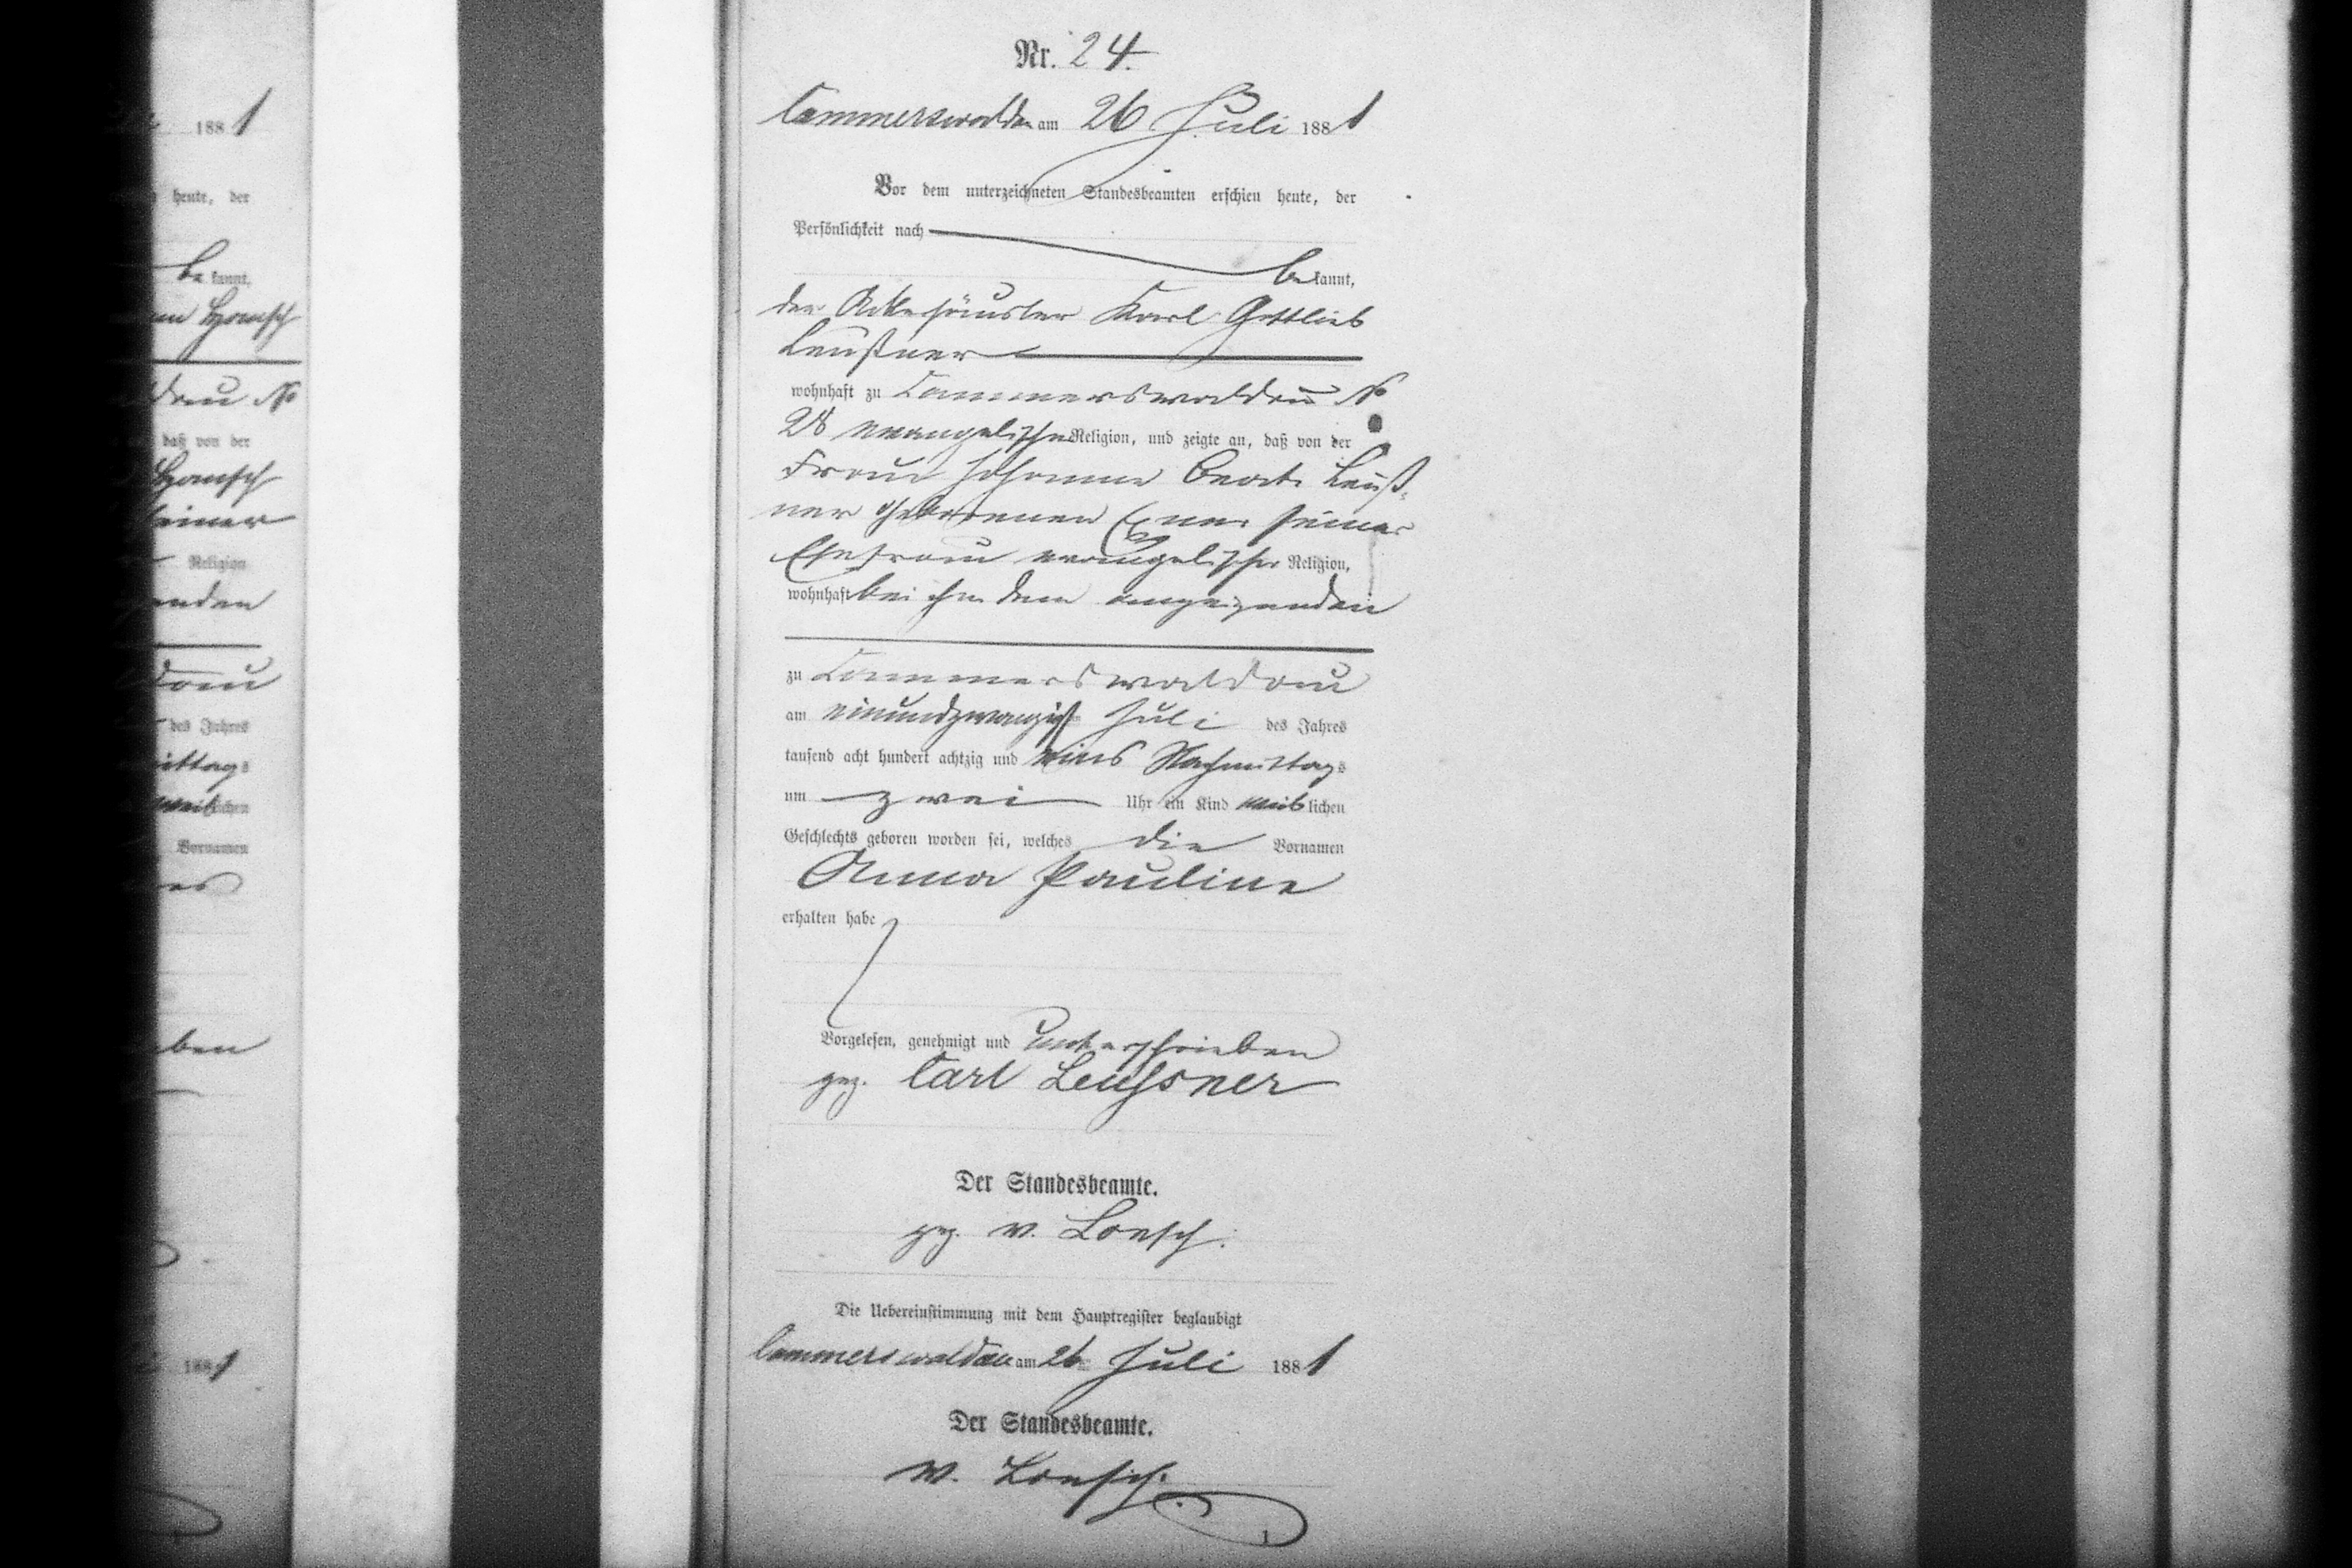 Nr. 24.
Cammerswaldau am 26 Juli 1881
Vor dem unterzeichneten Standesbeamten erschien heute, der
Persönlichkeit nach
bekannt,
der Ackerhäusler Karl Gottlieb
Leußner
wohnhaft zu Cammerswaldau No
28 evangelischer Religion, und zeigte an, daß von der
Frau Johanne Beate Leuß-
ner geborenen Exner seiner
Ehefrau evangelischer Religion,
wohnhaft bei ihm dem anzeigenden
zu Cammerswaldau
am einundzwanzigsten Juli des Jahres
tausend acht hundert achtzig und eins Nachmittags
um zwei Uhr ein Kind weiblichen
Geschlechts geboren worden sei, welches die Vornamen
Anna Pauline
erhalten habe
Vorgelesen, genehmigt und unterschrieben
gez. Carl Leussner
Der Standesbeamte.
gez. v. Loesch.
Die Uebereinstimmung mit dem Hauptregister beglaubigt
Cammerswaldau am 26ten Juli 1881
Der Standesbeamte.
v. Loesch.
1881
heute, der
bekannt,
No
daß von der
seiner
Religion
des Jahres
Vornamen
1881